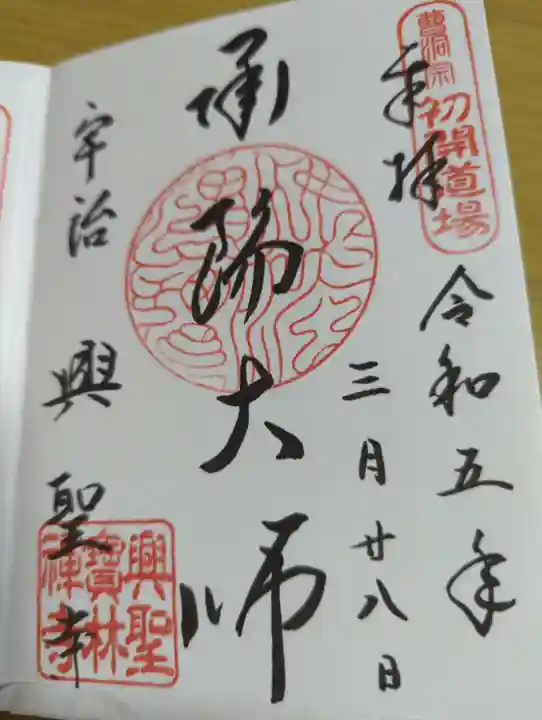 曹洞宗
初開道場
奉拝
令和五年
三月廿八日
承陽大師
宇治
興聖寺
興聖
寶林
禅寺